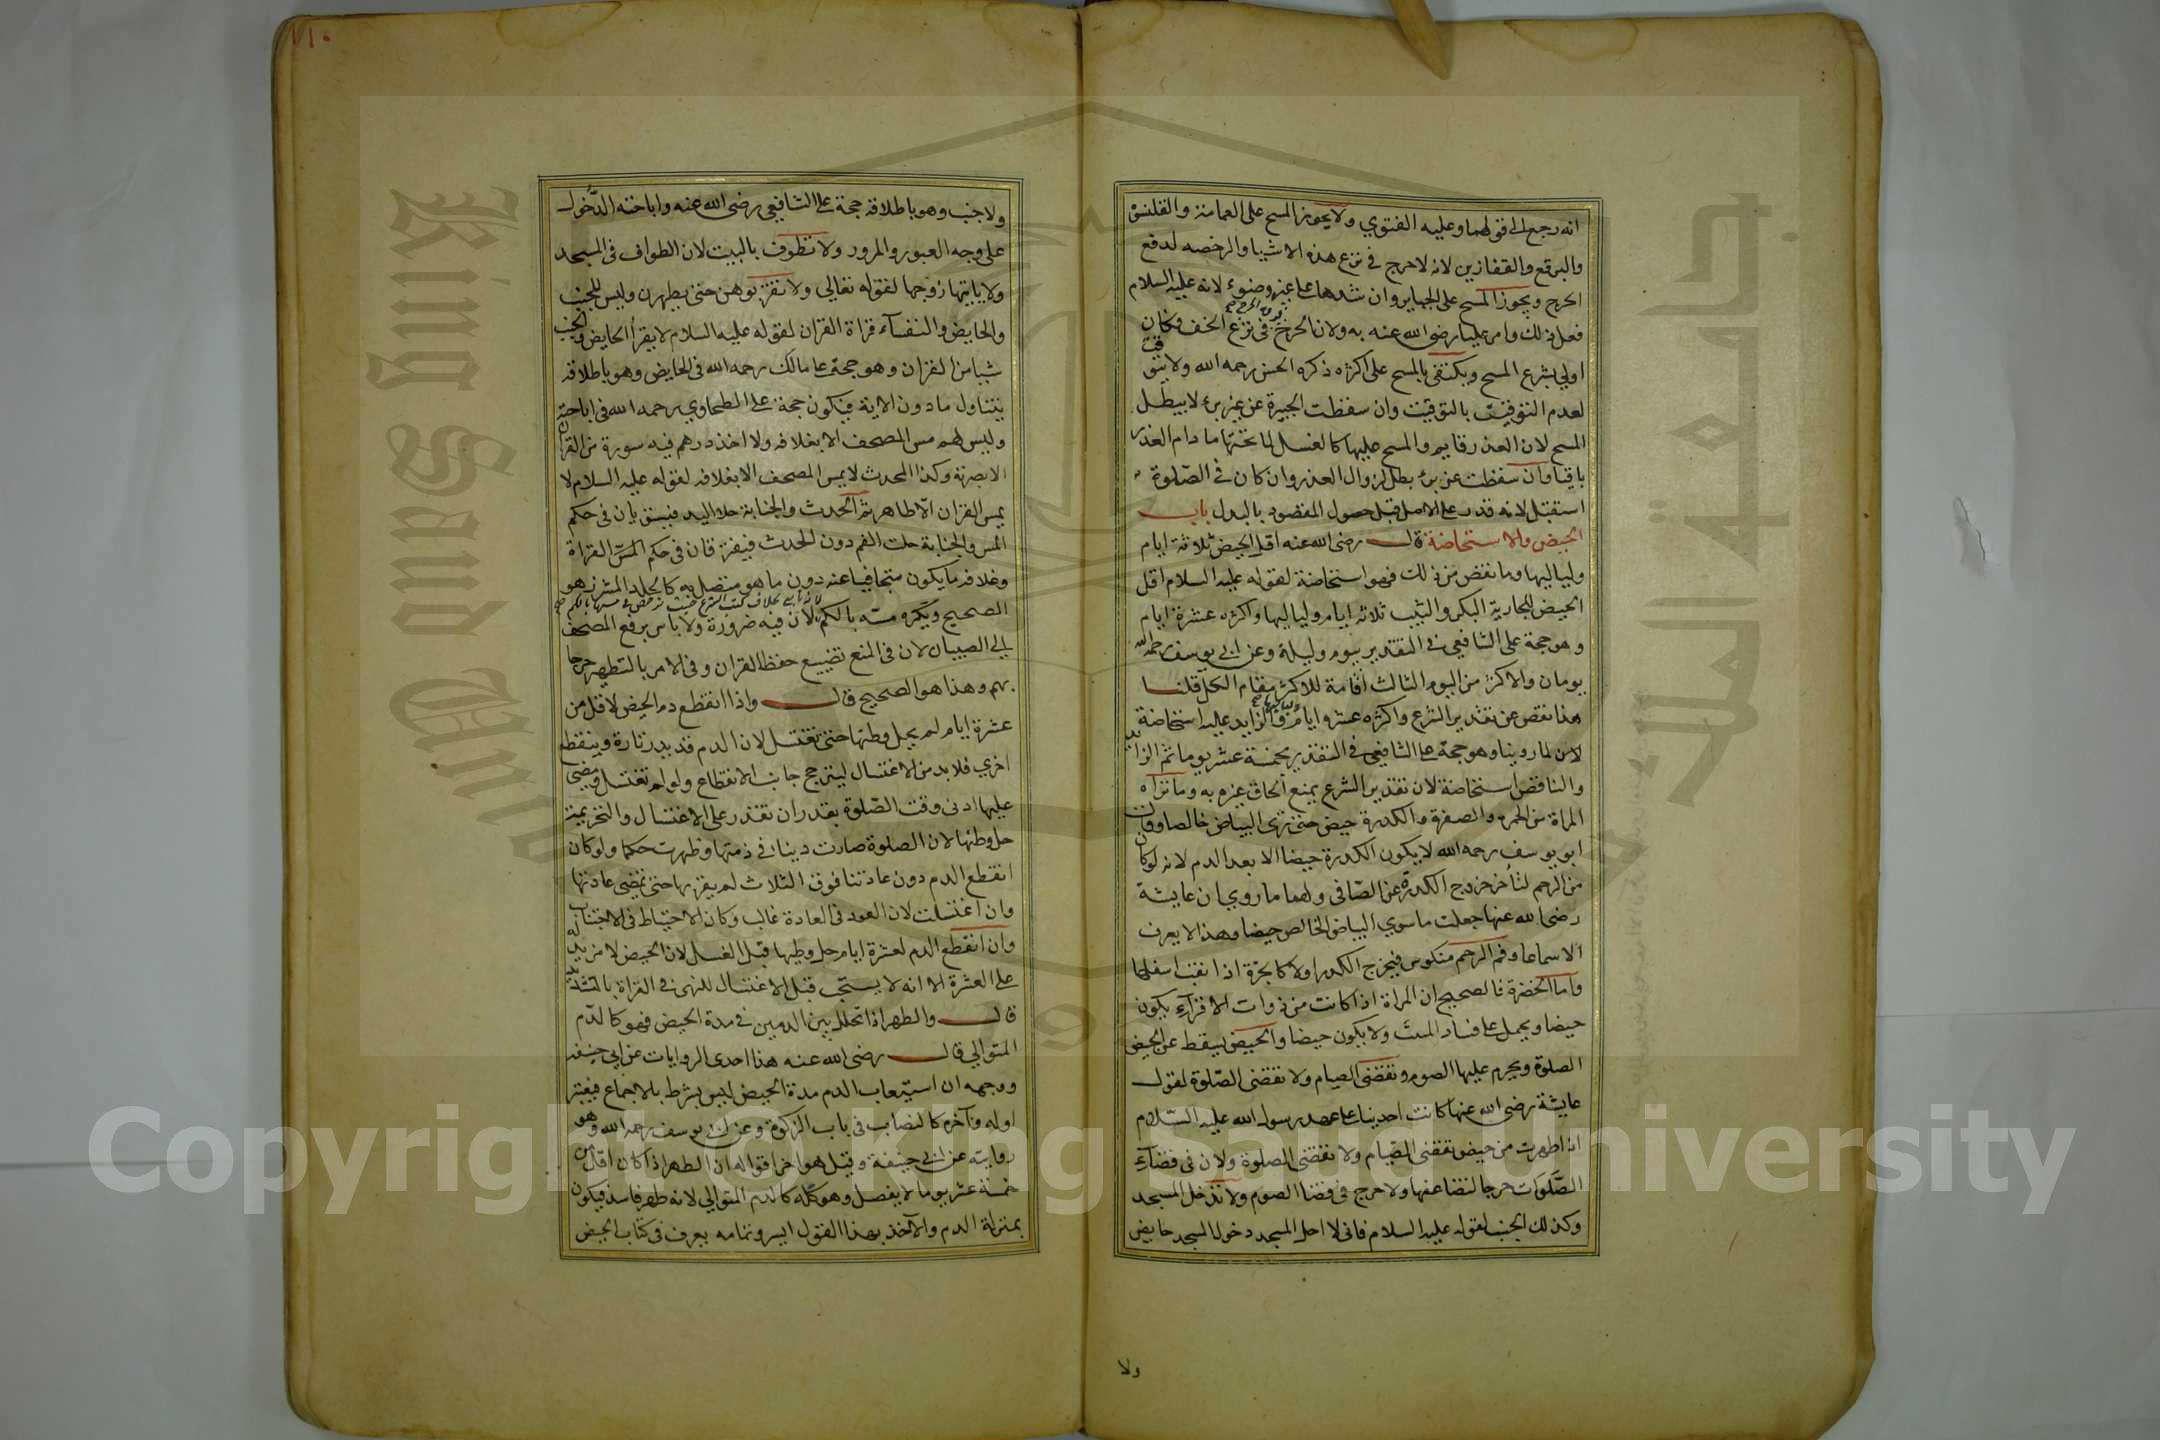 انه رجع الى قولهما وعليه الفتوي ولا يجوز المسح على العمامة والقلنسوة
والبرقع والقفازين لانه لا حرج في نزع هذه الاشيا والرخصه لدفع
الحرج ويجوز المسح على الجباير وان شدها على غير وضوء لانه عليه السلام
فعل ذلك وامر عليا رضي الله عنه به ولان الحرج فيه فوق الحرج في نزع الخف فكان
اولى بشرع المسح ويكتفي بالمسح على اكثره ذكره الحسن رحمه الله ولا يتوقت
لعدم التوقيف بالتوقيت وان سقطت الجبيرة عن غير برء لا يبطل
المسح لان العذر قايم والمسح عليها كالغسل لما تحتها ما دام العذر
باقيا وان سقطت عن برء بطل لزوال العذر وان كان في الصلوة
استقبل لانه قدر على الاصل قبل حصول المقصود بالبدل باب
الحيض والاستحاضة قال رضي الله عنه اقل الحيض ثلاثة ايام
ولياليها وما نقص من ذلك فهو استحاضة لقوله عليه السلام اقل
الحيض للجارية البكر والثيب ثلاثه ايام ولياليها واكثره عشرة ايام
وهو حجة على الشافعي في التقدير بيوم وليلة وعن ابي يوسف رحمه الله
يومان والاكثر من اليوم الثالث اقامة للاكثر مقام الكل قلنا
هذا نقص عن تقدير الشرع واكثره عشرة ايام ولياليها والزايد عليه استحاضة
لما روينا وهو حجة على الشافعي في التقدير بخمسة عشر يوما ثم الزايد
والناقص استحاضة لان تقدير الشرع يمنع الحاق غيره به وما تراه
المراة من الحمرة والصفرة والكدرة حيض حتى ترى البياض خالصا وقال
ابو يوسف رحمه الله لا يكون الكدرة حيضا الا بعد الدم لانه لو كان
من الرحم لتأخر خروج الكدرة عن الصافي ولهما ما روي ان عايشة
رضي الله عنها جعلت ما سوي البياض الخالص حيضا وهذا لا يعرف
الا سماعا وفم الرحم منكوس فيخرج الكدر اولا كالجرة اذا نقب اسفلها
واما الخضرة فالصحيح ان المراة اذا كانت من ذوات الاقراء يكون
حيضا ويحمل على فساد ولا يكون حيضا والحيض يسقط عن الحيض
الصلوة ويحرم عليها الصوم وتقضي الصيام ولا تقضي الصلوة لقول
عايشة رضي الله عنها كانت احدينا على عهد رسول الله عليه السلام
اذا طهرت من حيض تقضي الصيام ولا تقضي الصلوة ولان في قضاء
الصلوات حرجا لتضاعفها ولا حرج في قضا الصوم ولا تدخل المسجد
وكذلك الجنب لقوله عليه السلام فاني لا احل المسجد دخول المسجد حايض
ولا
١١٠
ولا جنب وهو باطلاقه حجة على الشافعي رضي الله عنه واباحته الدخول
على وجه العبور والمرور ولا تطوف بالبيت لان الطواف في المسجد
ولا ياتيها زوجها لقوله تعالي ولا تقربوهن حتى يطهرن وليس للجنب
والحايض والنفساء قراة القران لقوله عليه السلام لا يقرأ الحايض والجنب
شيا من القران وهو حجة على مالك رحمه الله في الحايض وهو باطلاقه
يتناول ما دون الاية فيكون حجة على الطحاوي رحمه الله في اباحته
وليس لهم مس المصحف الا بغلافه ولا اخذ درهم فيه سورة من القران
الا بصرته وكذا المحدث لا يمس المصحف الا بغلافه لقوله عليه السلام لا
يمس القران الا طاهر ثم الحدث والجنابة حلا اليد فيستويان في حكم
المس والجنابة حلت الفم دون الحدث فيفترقان في حكم المس القراة
وغلافه ما يكون متجافيا عنه دون ما هو متصل به كالجلد المشرز هو
الصحيح ويكره مسه بالكم لان فيه ضرورة ولا باس برفع المصحف
الى الصبيان لان في المنع تضييع حفظ القران وفي الامر بالتطهر حرجا
بهم وهذا هو الصحيح قال واذا انقطع دم الحيض لاقل من
عشرة ايام لم يحل وطئها حتى تغتسل لان الدم قد يدر تارة وينقطع
اخري فلا بد من الاغتسال ليترجح جانب الانقطاع ولو لم تغتسل ومضى
عليها ادنى وقت الصلوة بقدر ان تقدر على الاغتسال والتحريمة
حل وطئها لان الصلوة صارت دينا في ذمتها وطهرت حكما ولو كان
انقطع الدم دون عادتنا فوق الثلاث لم يقربها حتى تمضي عادتها
وان اغتسلت لان العود في العادة غالب وكان الاحتياط في الاجتناب
وان انقطع الدم لعشرة ايام حل وطيها قبل الغسل لان الحيض لا مزيد له
على العشرة الا انه لا يستحب قبل الاغتسال للنهي في القراة بالتشديد
قال والطهر اذا تخلل بين الدمين في مدة الحيض فهو كالدم
المتوالي قال رضي الله عنه هذا احدى الروايات عن ابي حنيفة
ووجهه ان استيعاب الدم مدة الحيض ليس بشرط بالاجماع فيعتبر
اوله وآخره كالنصاب في باب الزكوة وعن ابي يوسف رحمه الله وهو
روايته عن ابي حنيفة وقيل هو اخر اقواله ان الطهر اذا كان اقل من
خمسة عشر يوما لا يفصل وهو كله كالدم المتوالي لانه طهر فاسد فيكون
بمنزلة الدم والآخذ بهذا القول ايسر وتمامه يعرف في كتاب الحيض
King Saud University
جامعة الملك سعود
Copyright © King Saud University